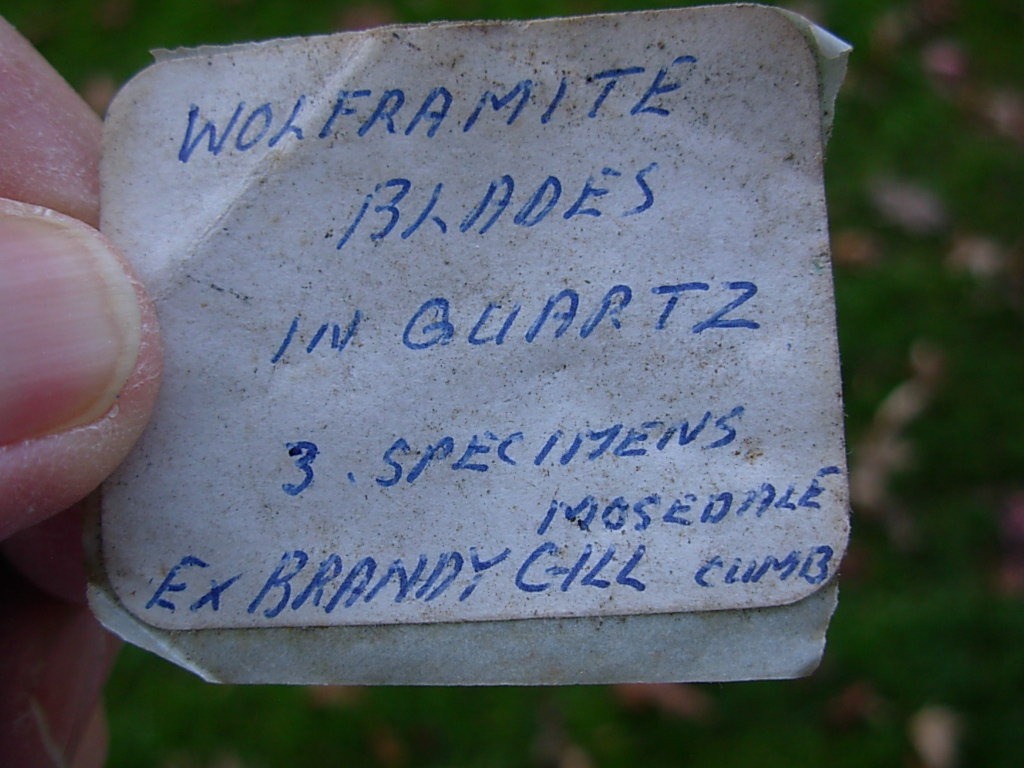 WOLFRAMITE
BLADES
IN QUARTZ
3. SPECIMENS
MOSEDALE
EX BRANDY GILL CUMB